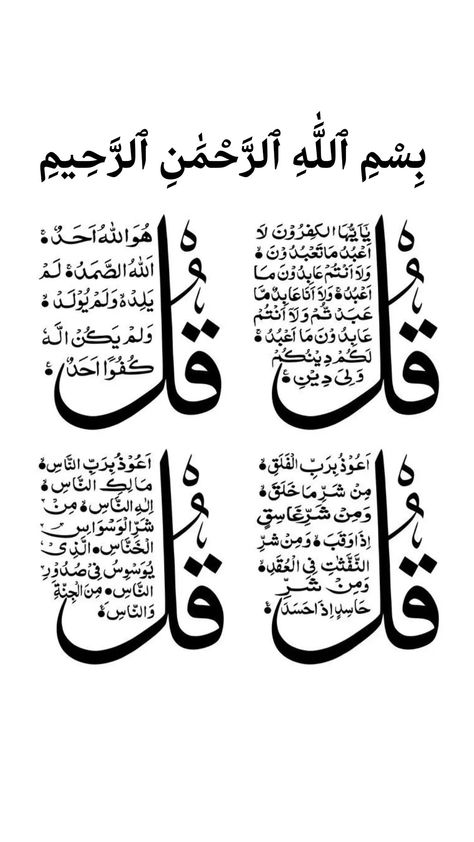 بِسْمِ ٱللَّهِ ٱلرَّحْمَٰنِ ٱلرَّحِيمِ
قُلْ
يٰٓاَيُّهَا الْكٰفِرُوْنَ لَا
اَعْبُدُ مَا تَعْبُدُوْنَ
وَلَا اَنْتُمْ عَابِدُوْنَ مَا
اَعْبُدُ وَلَا اَنَا عَابِدٌ مَّا
عَبَدْ تُّمْ وَلَا اَنْتُمْ
عَابِدُوْنَ مَا اَعْبُدُ
لَكُمْ دِيْنُكُمْ
وَلِىَ دِيْنِ
قُلْ
هُوَ اللّٰهُ اَحَدٌ
اَللّٰهُ الصَّمَدُ لَمْ
يَلِدْ وَلَمْ يُوْلَدْ
وَلَمْ يَكُنْ لَّهٗ
كُفُوًا اَحَدٌ
قُلْ
اَعُوْذُ بِرَبِّ الْفَلَقِ
مِنْ شَرِّ مَا خَلَقَ
وَمِنْ شَرِّ غَاسِقٍ
اِذَا وَقَبَ وَمِنْ شَرِّ
النَّفّٰثٰتِ فِى الْعُقَدِ
وَمِنْ شَرِّ
حَاسِدٍ اِذَا حَسَدَ
قُلْ
اَعُوْذُ بِرَبِّ النَّاسِ
مَالِكِ النَّاسِ
اِلٰهِ النَّاسِ مِنْ
شَرِّ الْوَسْوَاسِ
الْخَنَّاسِ الَّذِىْ
يُوَسْوِسُ فِىْ صُدُوْرِ
النَّاسِ مِنَ الْجِنَّةِ
وَالنَّاسِ